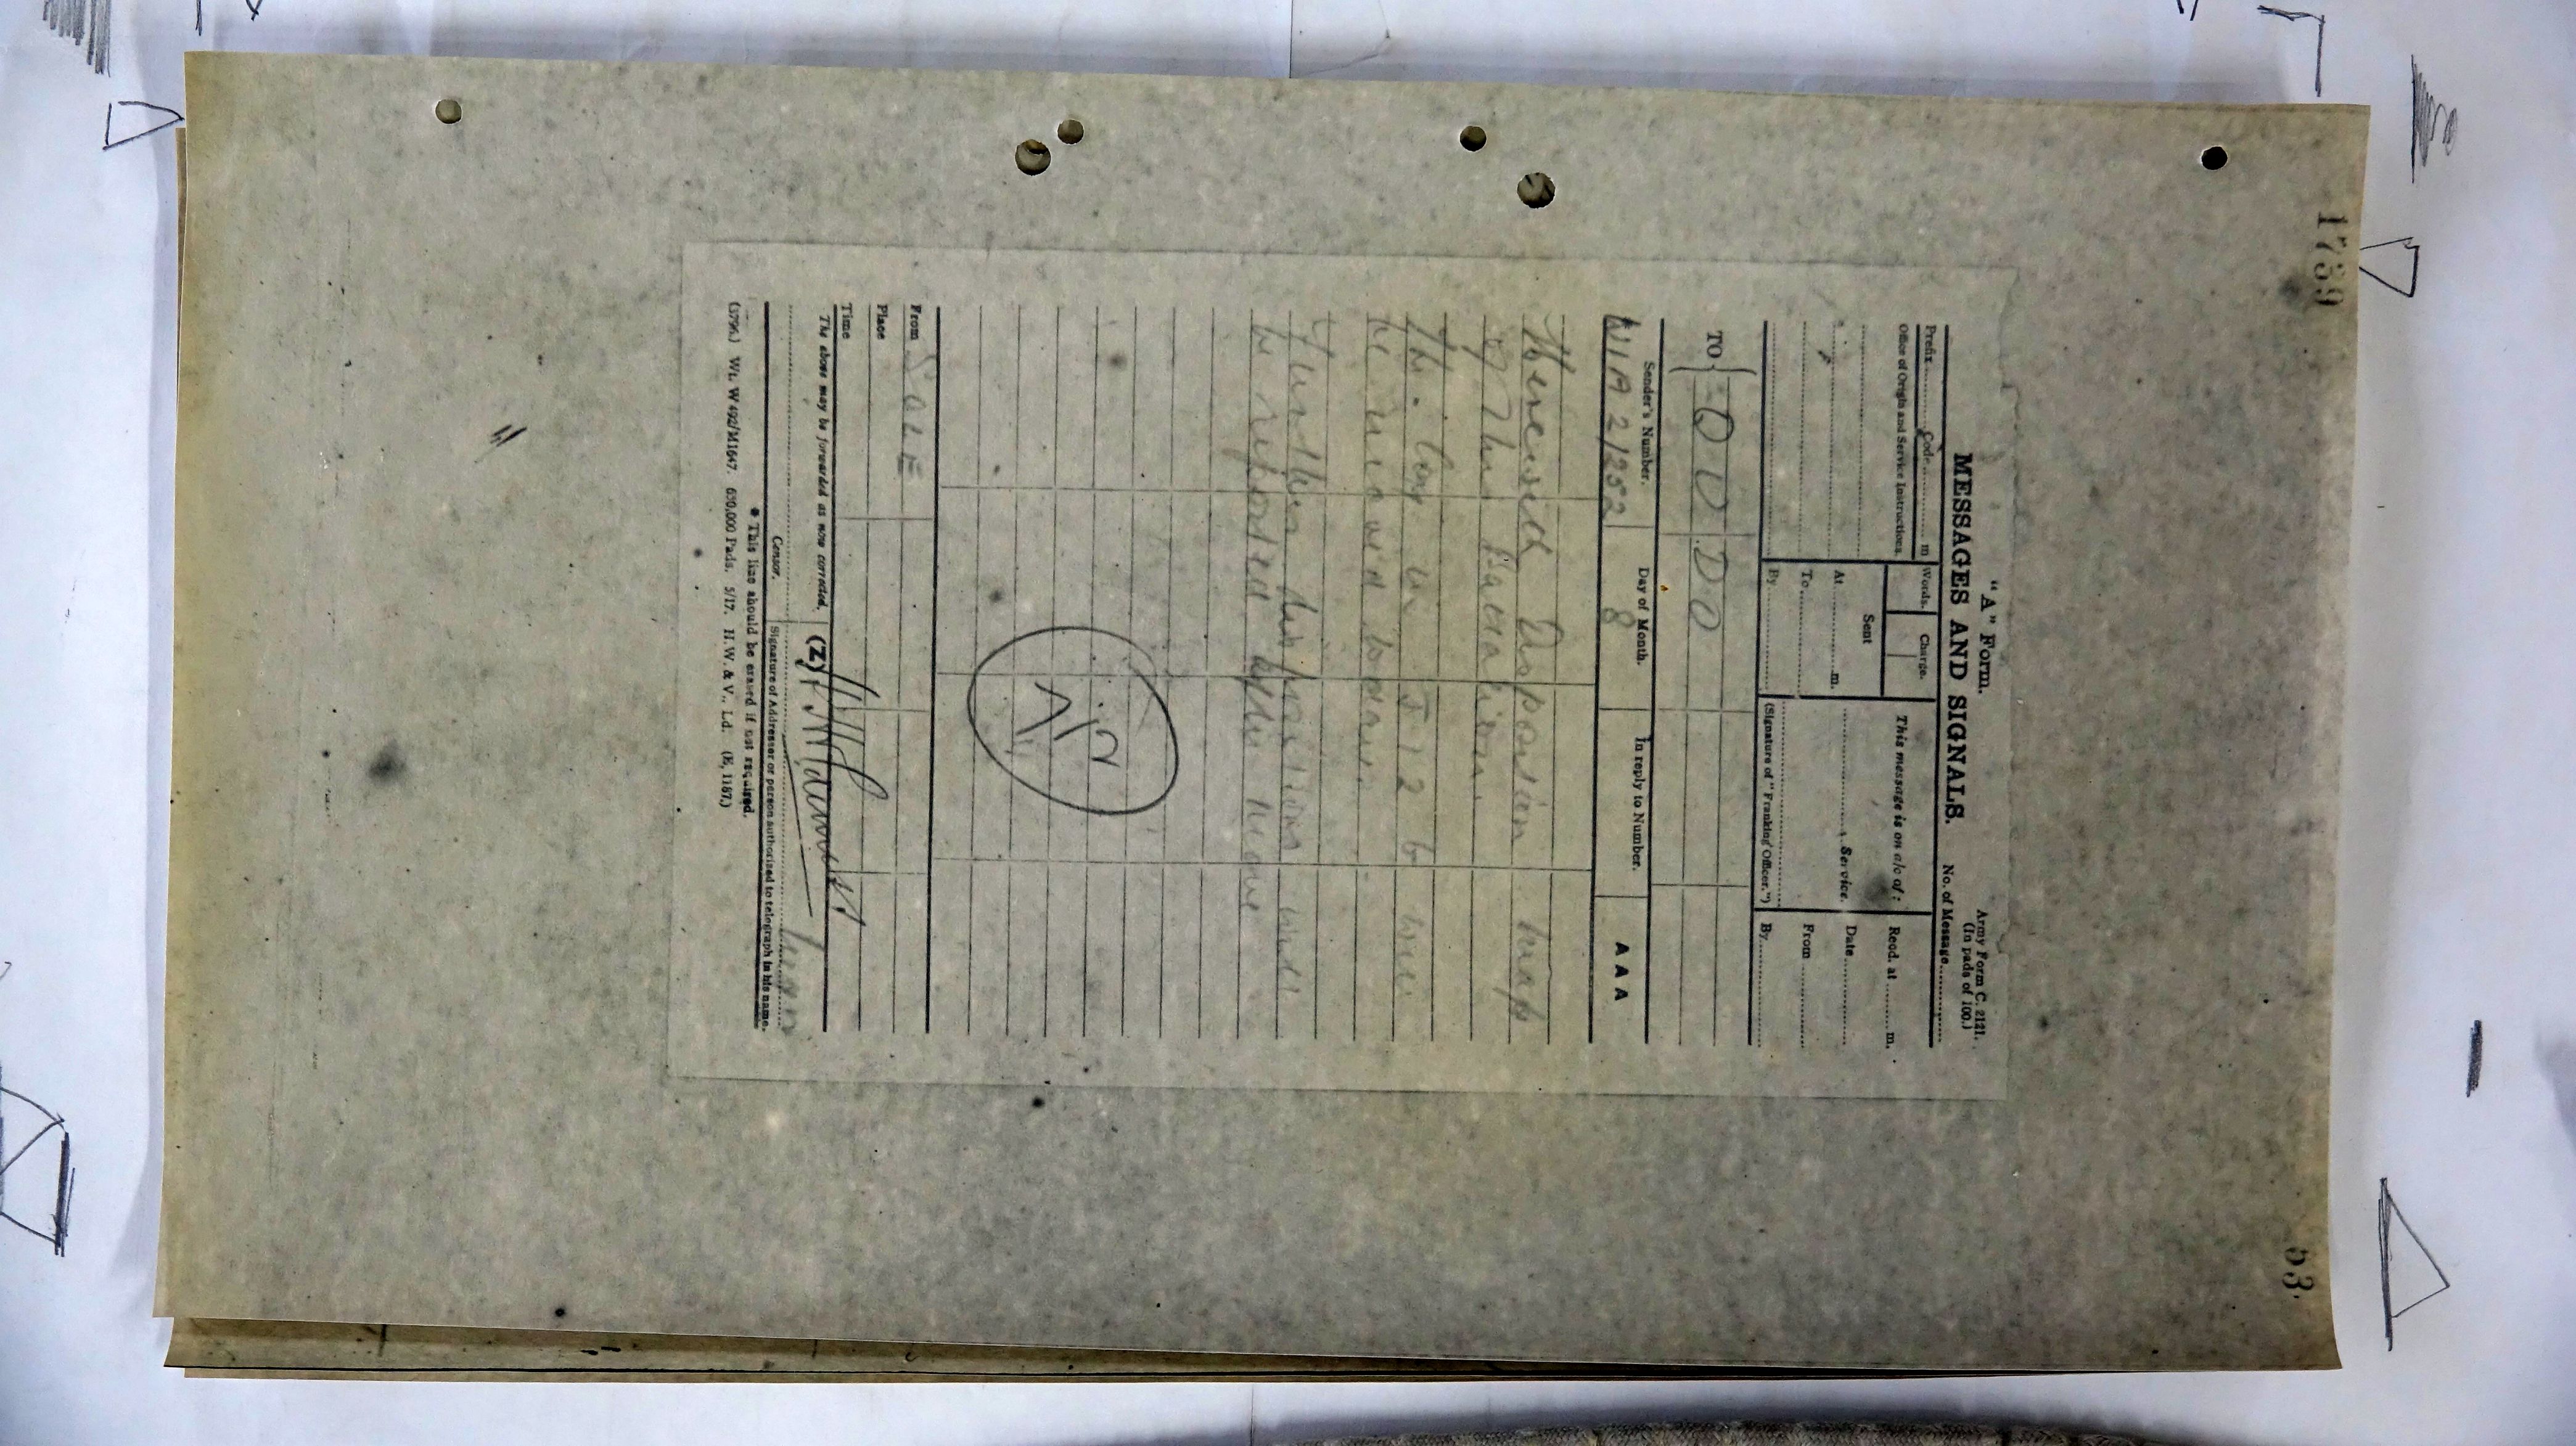 1739
"A" Form.
MESSAGES AND SIGNALS.
Army Form C. 2121.
(In pads of 100.)
No. of Message
Prefix Code m
Words. Charge.
This message is on a/c of:
Recd. at m.
Office of Origin and Service Instructions.
Sent
At m.
Service.
Date
To
From
By
(Signature of "Franking Officer.")
By
TO D U D O
Sender's Number. Day of Month. In reply to Number. A A A
WIA 2/252 8
Herewith Disposition map
of this Battalion.
The Coy in I 12 b will
be moved today.
Further dispositions will
be reported after move
From SOLE
Place
Time
The above may be forwarded as now corrected. (Z)
Censor. Signature of Addressor or person authorised to telegraph in his name.
* This line should be erased if not required.
(3796.) Wt. W 492/M1647. 650,000 Pads. 5/17. H.W. & V., Ld. (E, 1187.)
53.